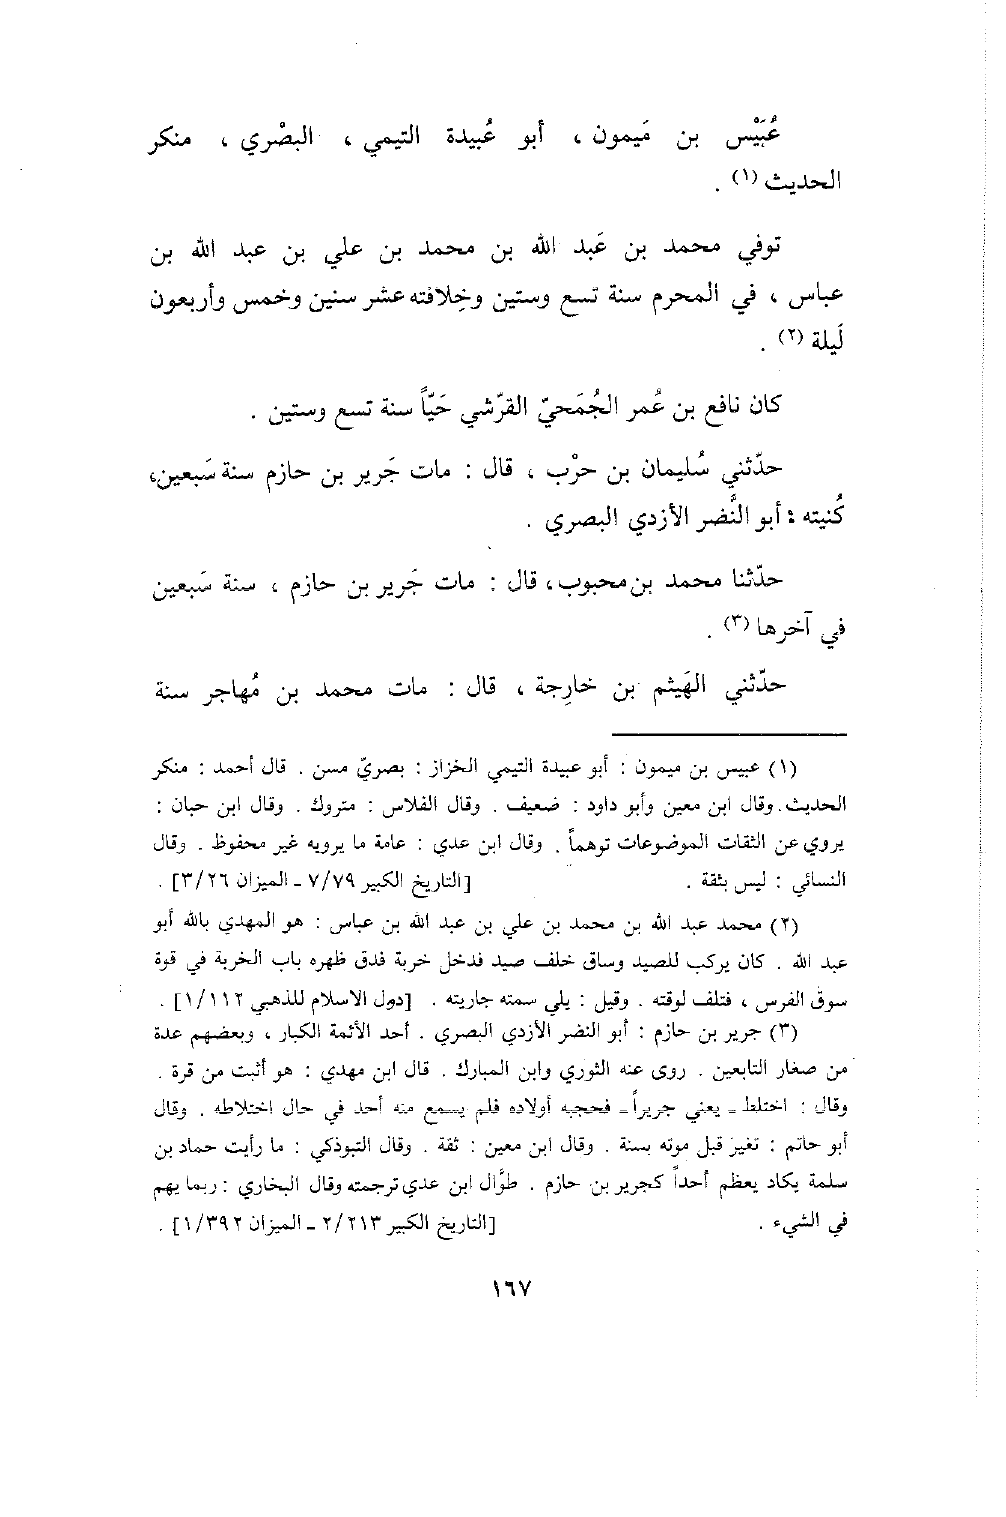 عُبَيْس بن مَيمون ، أبو عُبيدة التيمي ، البصْري ، منكر
الحديث (١) .
توفي محمد بن عَبد الله بن محمد بن علي بن عبد الله بن
عباس ، في المحرم سنة تسع وستين وخِلافته عشر سنين وخمس وأربعون
لَيلة (٢) .
كان نافع بن عُمر الجُمَحيّ القرّشي حَيّاً سنة تسع وستين .
حدّثني سُليمان بن حرْب ، قال : مات جَرير بن حازم سنة سَبعين،
كُنيته : أبو النَّضر الأزدي البصري .
حدّثنا محمد بن محبوب، قال : مات جَرير بن حازم ، سنة سَبعين
في آخرها (٣) .
حدّثني الهَيثم بن خارِجة ، قال : مات محمد بن مُهاجر سنة
(١) عبيس بن ميمون : أبو عبيدة التيمي الخزاز : بصريّ مسن . قال أحمد : منكر
الحديث. وقال ابن معين وأبو داود : ضعيف . وقال الفلاس : متروك . وقال ابن حبان :
يروي عن الثقات الموضوعات توهماً . وقال ابن عدي : عامة ما يرويه غير محفوظ . وقال
النسائي : ليس بثقة . [التاريخ الكبير ٧/٧٩ ـ الميزان ٣/٢٦] .
(٢) محمد عبد الله بن محمد بن علي بن عبد الله بن عباس : هو المهدي بالله أبو
عبد الله . كان يركب للصيد وساق خلف صيد فدخل خربة فدق ظهره باب الخربة في قوة
سوق الفرس ، فتلف لوقته . وقيل : يلي سمته جاريته . [دول الاسلام للذهبي ١/١١٢] .
(٣) جرير بن حازم : أبو النضر الأزدي البصري . أحد الأئمة الكبار ، وبعضهم عدة
من صغار التابعين . روى عنه الثوري وابن المبارك . قال ابن مهدي : هو أثبت من قرة .
وقال : اختلط ـ يعني جريراً ـ فحجبه أولاده فلم يسمع منه أحد في حال اختلاطه . وقال
أبو حاتم : تغير قبل موته بسنة . وقال ابن معين : ثقة . وقال التبوذكي : ما رأيت حماد بن
سلمة يكاد يعظم أحداً كجرير بن حازم . طوَّال ابن عدي ترجمته وقال البخاري : ربما يهم
في الشيء . [التاريخ الكبير ٢/٢١٣ ـ الميزان ١/٣٩٢] .
١٦٧